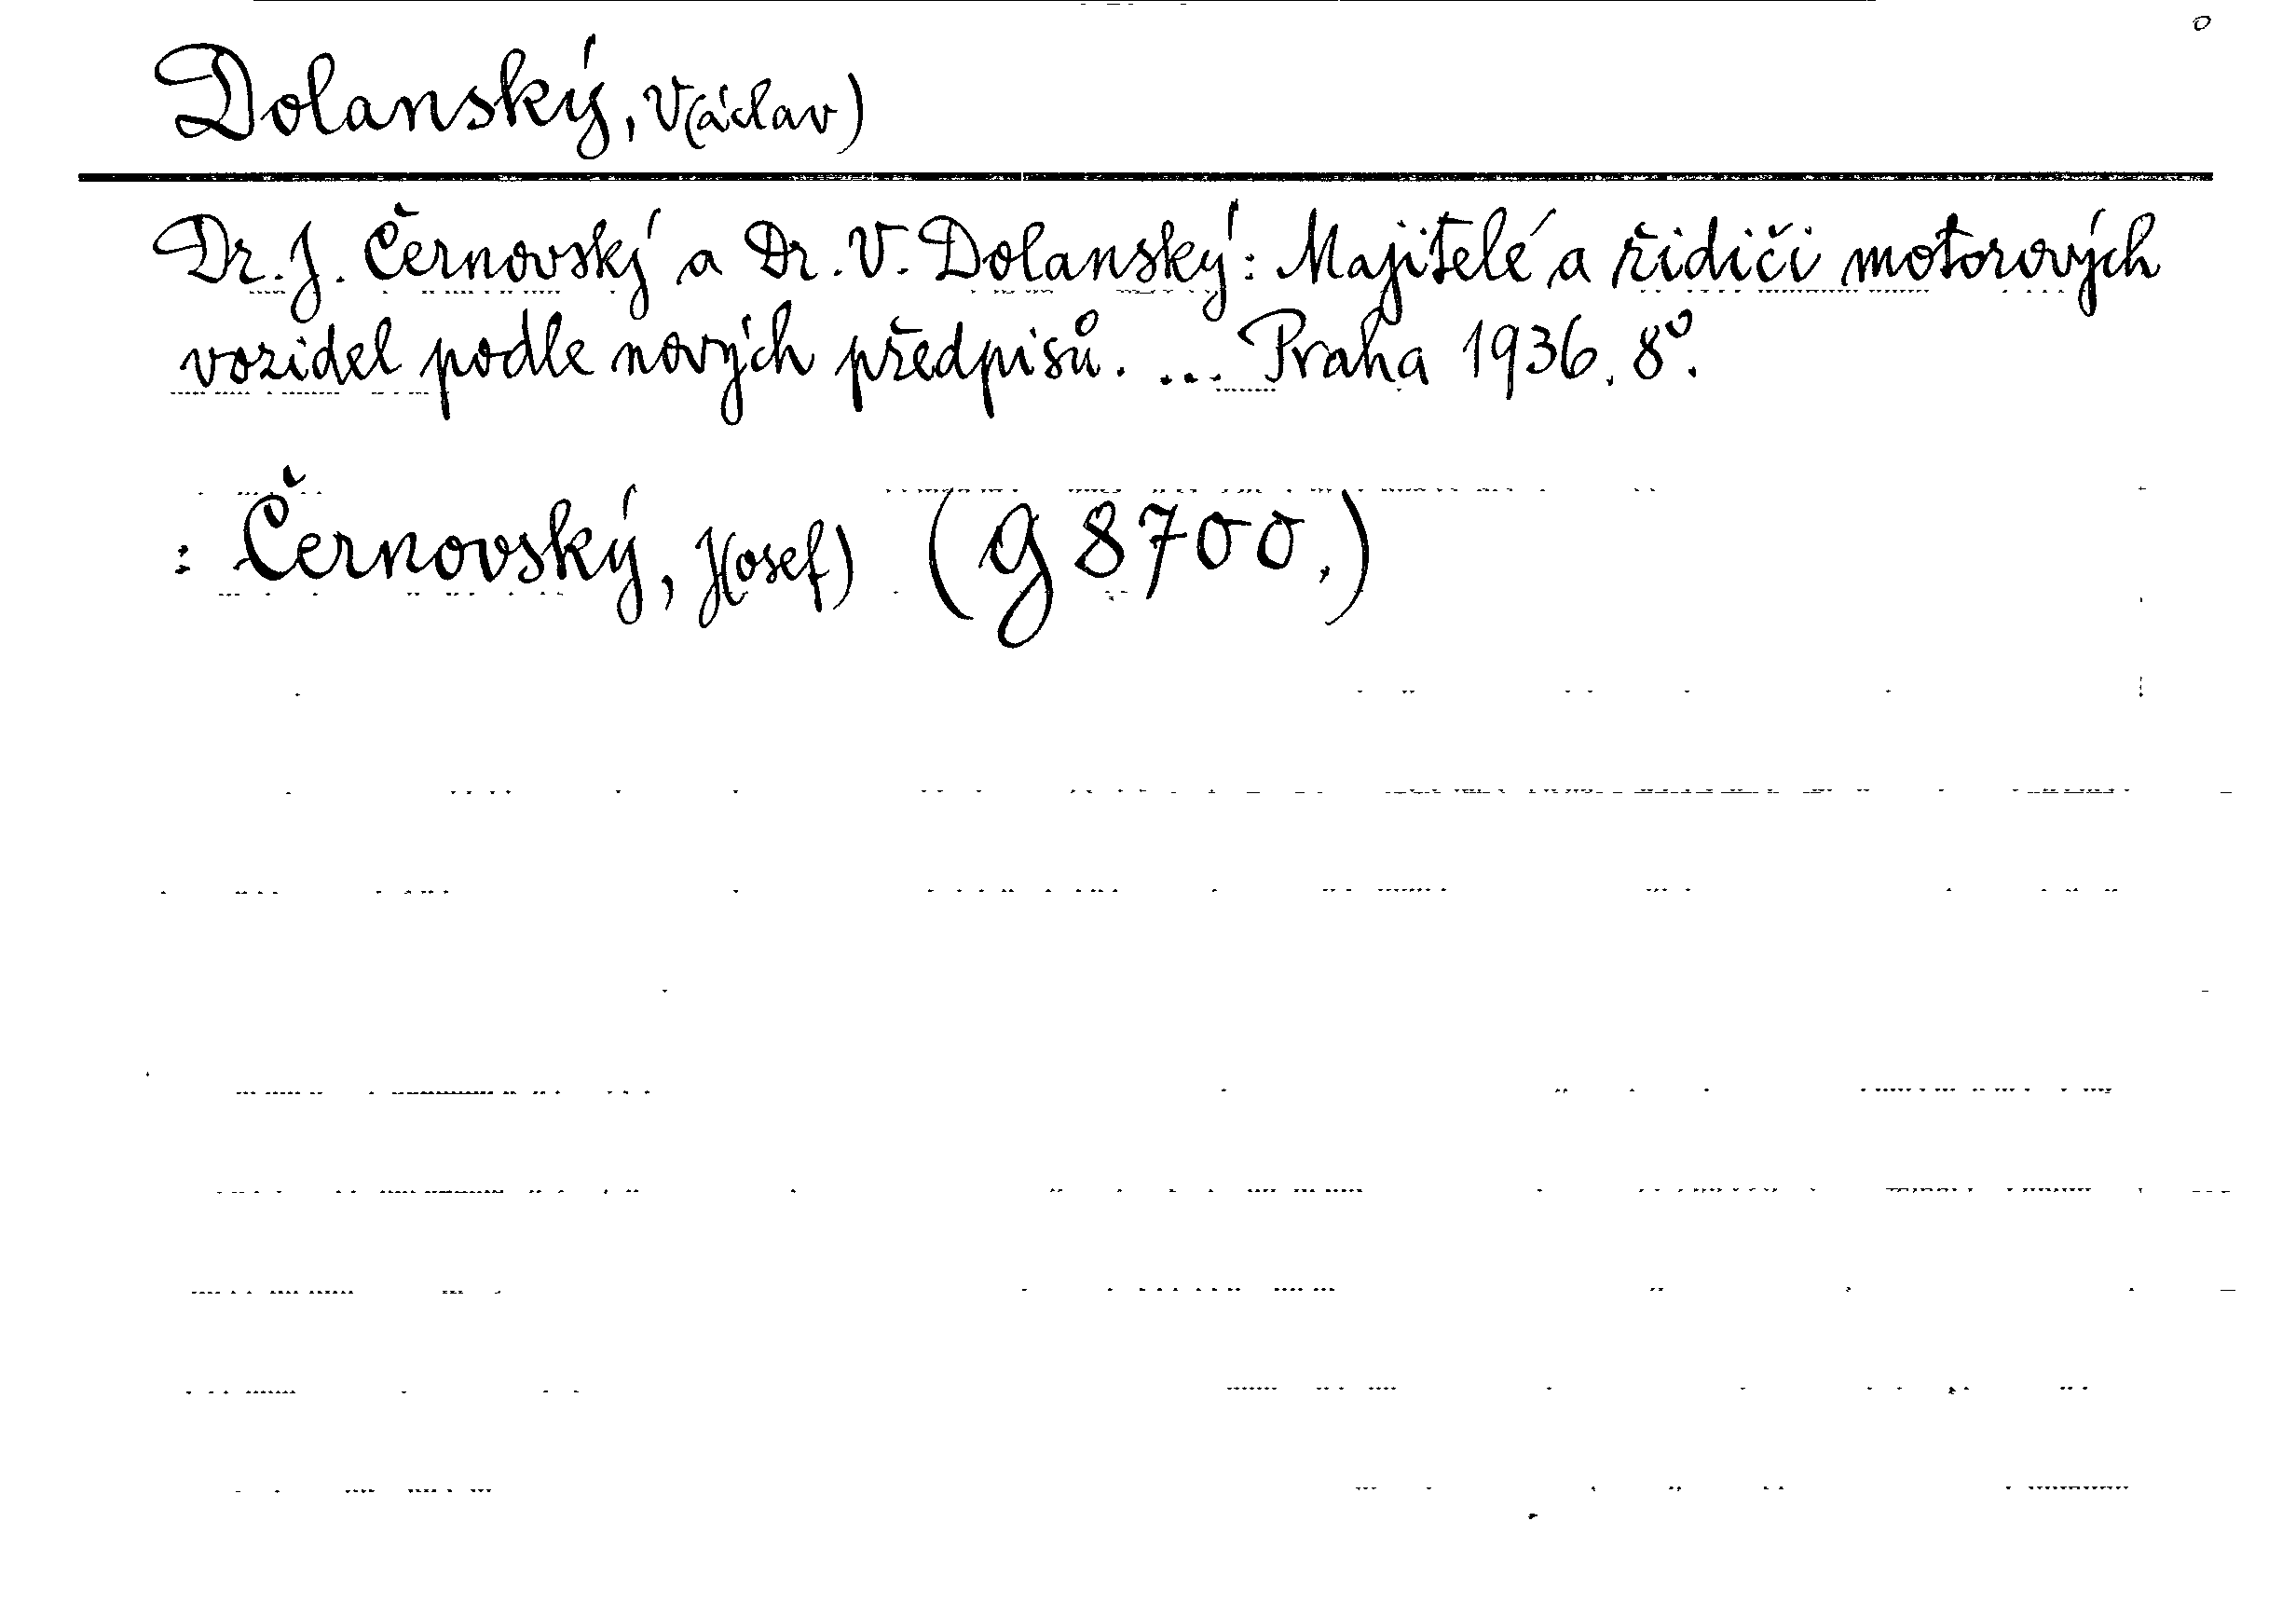 Dolanský, V(áclav)
Dr. J. Černovský a Dr. V. Dolanský: Majitelé a řidiči motorových
vozidel podle nových předpisů. ... Praha 1936. 8°.
: Černovský, J(osef) (g 8700.)